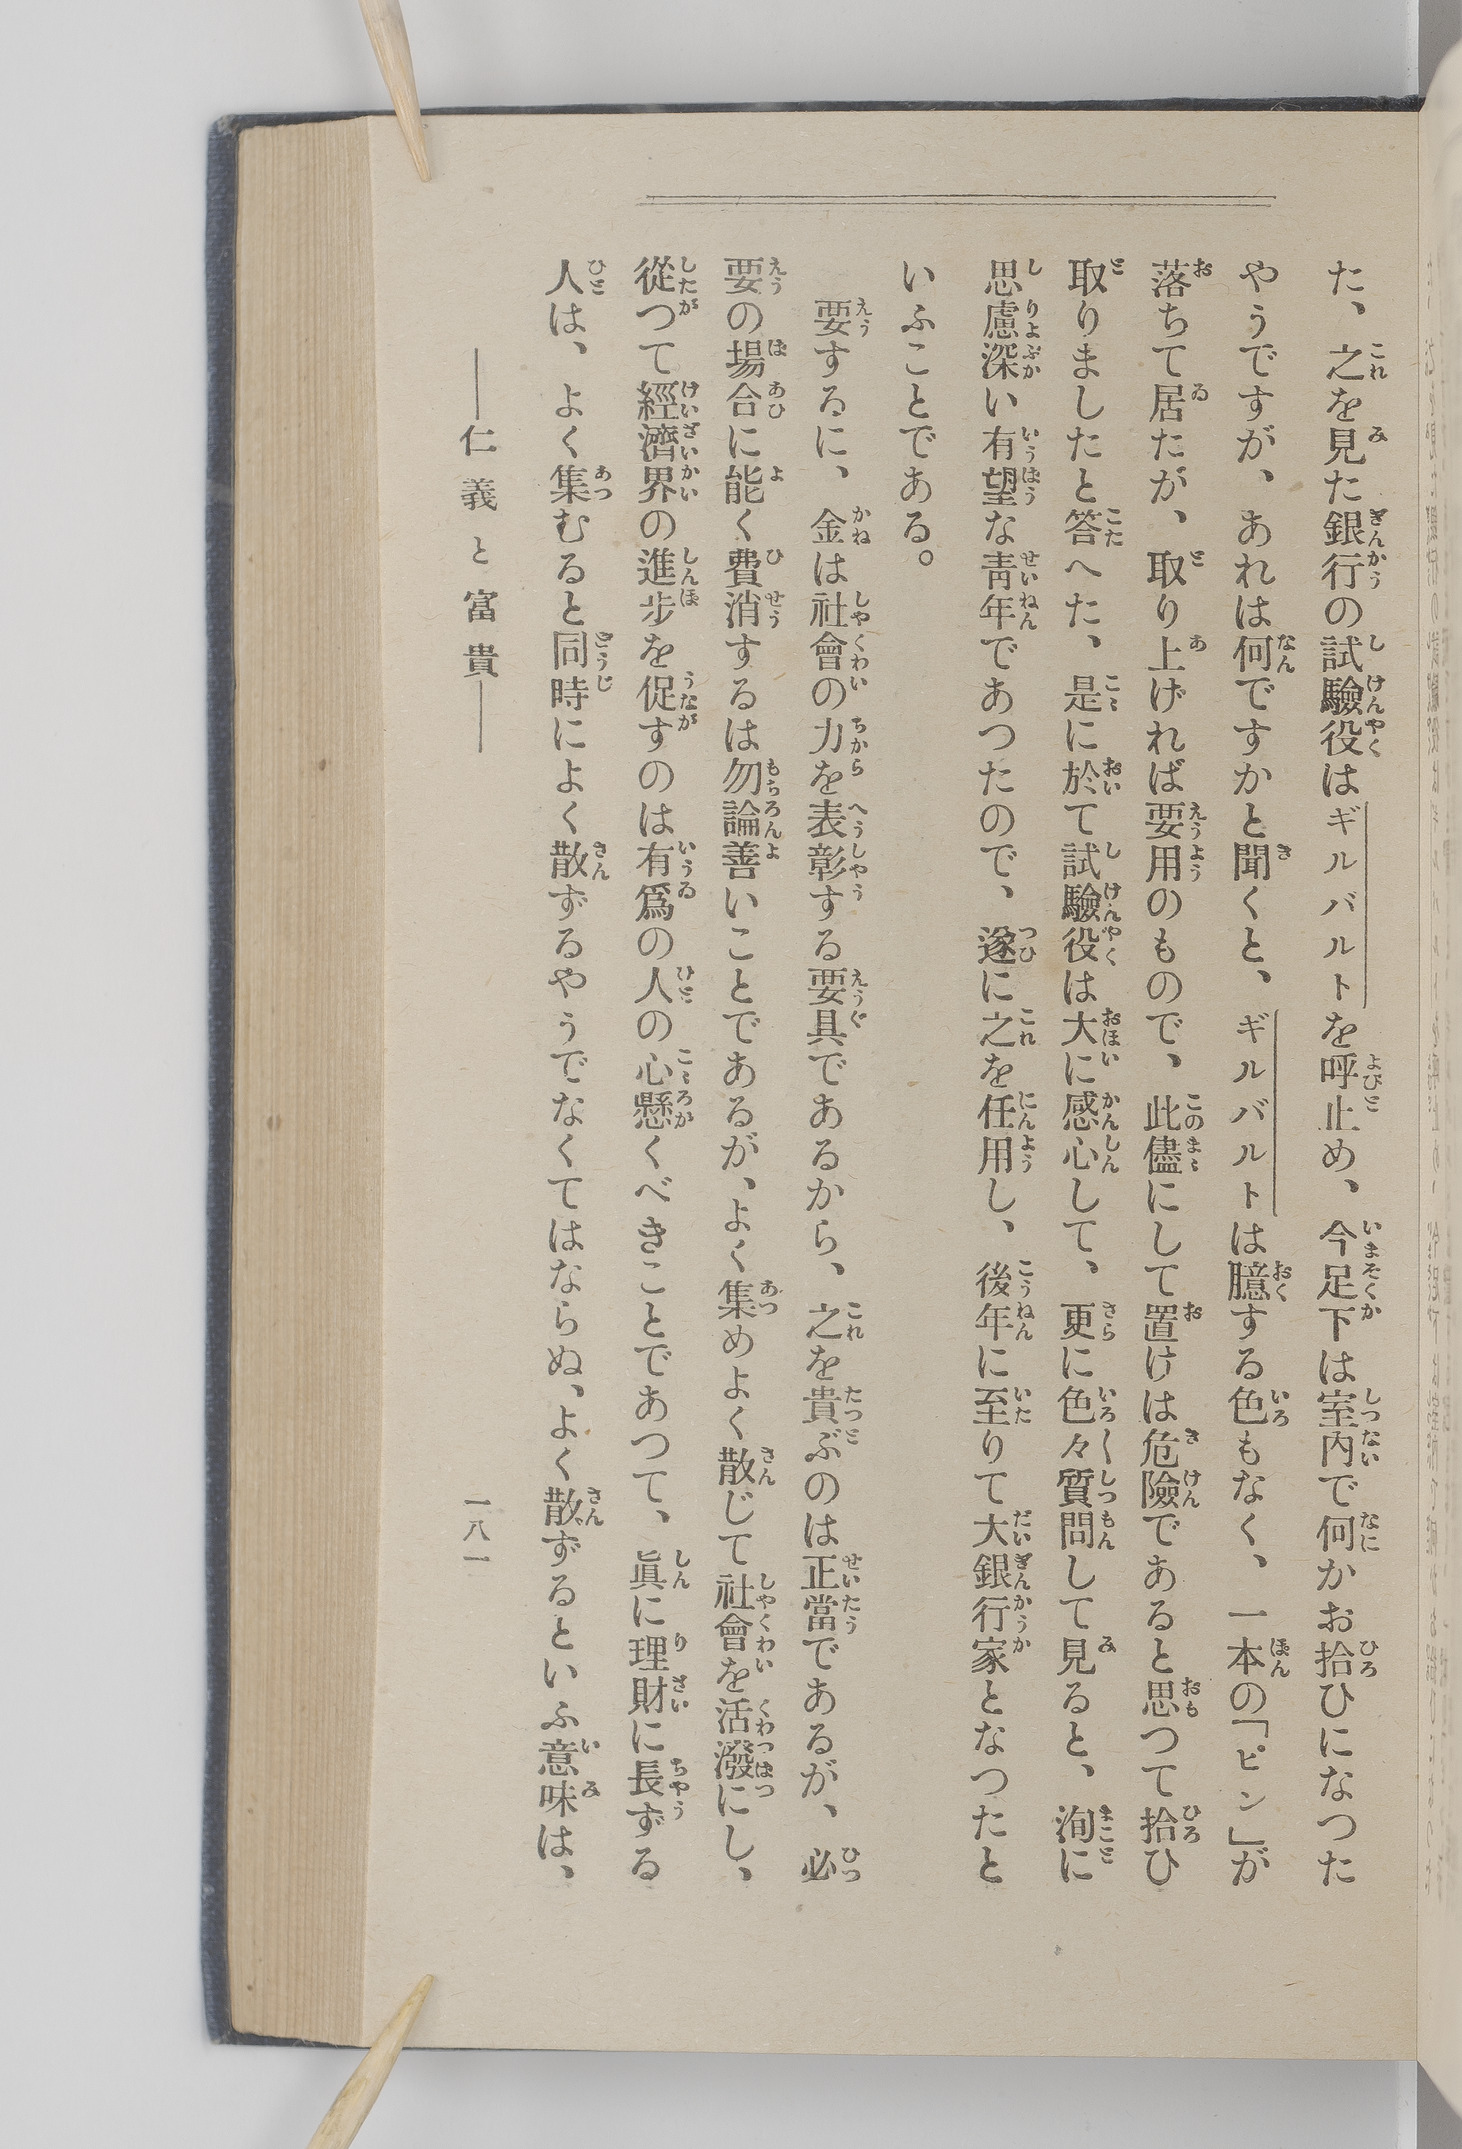 た、之を見た銀行の試驗役はギルバルトを呼止め、今足下は室内で何かお拾ひになつた
やうですが、あれは何ですかと聞くと、ギルバルトは臆する色もなく、一本の「ピン」が
落ちて居たが、取り上げれば要用のもので、此儘にして置けは危險であると思つて拾ひ
取りましたと答へた、是に於て試驗役は大に感心して、更に色々質問して見ると、洵に
思慮深い有望な靑年であつたので、遂に之を任用し、後年に至りて大銀行家となつたと
いふことである。
要するに、金は社會の力を表彰する要具であるから、之を貴ぶのは正當であるが、必
要の場合に能く費消するは勿論善いことであるが、よく集めよく散じて社會を活潑にし、
從つて經濟界の進步を促すのは有爲の人の心懸くべきことであつて、眞に理財に長ずる
人は、よく集むると同時によく散ずるやうでなくてはならぬ、よく散ずるといふ意味は、
――仁義と富貴――
一八一